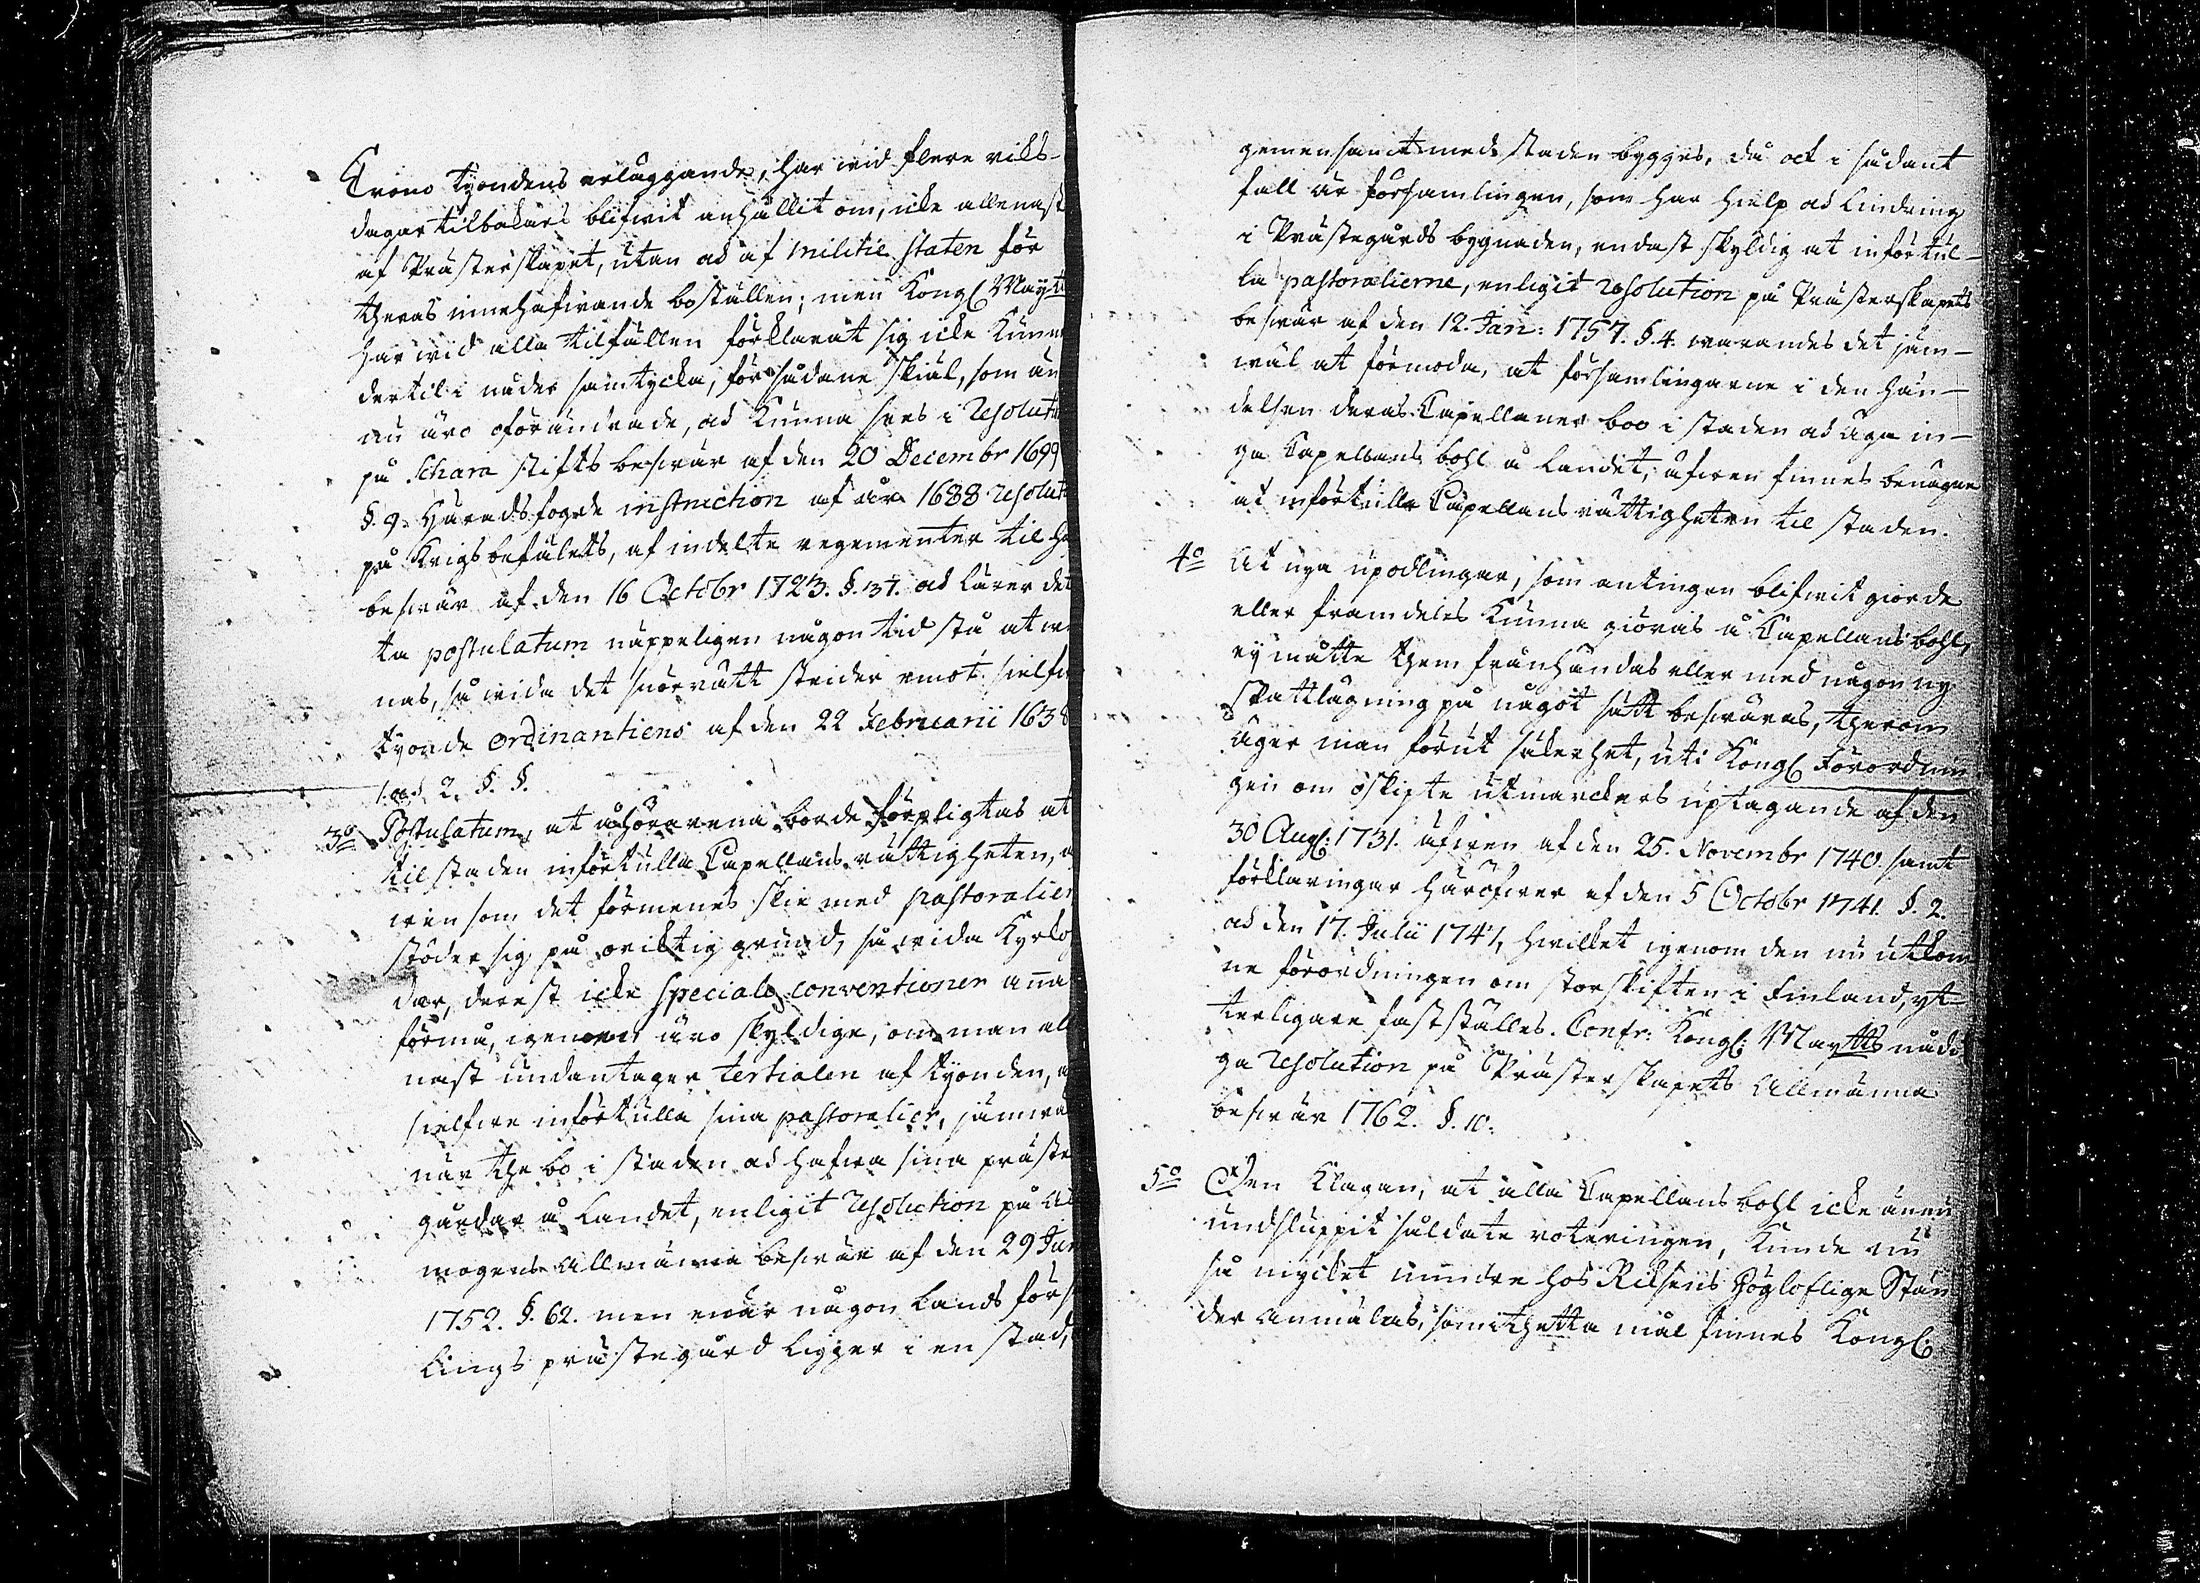 Crono tyondens erläggande, har wid flere riks-
dagar tilbakars blifwit anhållit om, icke allenast
af Prästerskapet, utan ock af militie staten för
theras innehafwande boställen; men Kongl Mayts
har wid alla tilfällen förklarat sig icke kunna
dertil i nåder samtycka, för sådane skiäl, som än
nu äro oförändrade, och kunna sees i Resolut
på Schara stifts beswär af den 20 Decembr 1699
§. 9. Häradsfogde instruction af år 1688 resolut
på Krigsbefälets, af indelte regementer til
beswär af den 16 Octobr 1723. §. 37. och lärer det
ta postulatum näppeligen någon tid stå at
nas, så wida det snörrätt strider emot sielfwa
tyonde ordinantiens af den 22 Februarii 1638
1. och 2. §. §.
3o Postulatum, at åhörarena borde förpligtas at
til staden införskulla Capellans rättigheten,
wen som det förmenes skie med pastoralier
stöder sig på oriktig grund, så wida Kyrko
dar, derest icke speciale conventioner anna
förmå, igenom äro skyldige, om man alle
nast undantager tertialen af tyonden,
sielfwe införskulla sina pastoralier, jämwäl
när the bo i staden och hafwa sina präste
gårdar å landet, enligit resolution på All
mogens Allmänna beswär af den 29 Jun
1752. §. 62. men enär någon lands förs
lings prästegård ligger i en stad,
gemensamt med staden bygges, då ock i sådant
fall är församlingen, som har hielp och lindring
i Prästegårds bygnaden, endast skyldig at införskul-
la pastoralierne, enligit resolution på Prästerskapets
beswär af den 12. Jan: 1757. §. 4. warandes det jäm-
wäl at förmoda, at församlingarne i den hän-
delsen deras Capellaner boo i staden och äga in-
ga Capellans bohl å landet, äfwen finnes benägne
at införskulla Capellans rättigheten til staden.
4o At nya upodlingar, som antingen blifwit giorde
eller framdeles kunna giöras å Capellans bohl,
ey måtte them frånhändas eller med någon ny
skattläggning på något sätt beswäras, therom
äger man förut säkerhet, uti Kongl Förordnin
gen om oskipte utmarckers uptagande af den
30 Aug: 1731. äfwen af den 25. Novembr 1740. samt
förklaringar häröfwer af den 5 Octobr 1741. §. 2.
och den 17. Julii 1741, hwilket igenom den nu utkom
ne förordningen om storskiften i Finland, yt-
terligare fastställes. Confr: Kongl: Maytts nådi
ga resolution på Prästerskapets Allmänna
beswär 1762. §. 10.
5o Den klagan, at alla Capellans bohl icke ännu
undsluppit soldate roteringen, kunde nu
så mycket mindre hos Riksens Högloflige Stän
der anmälas, som thetta mål finnes Kongl: